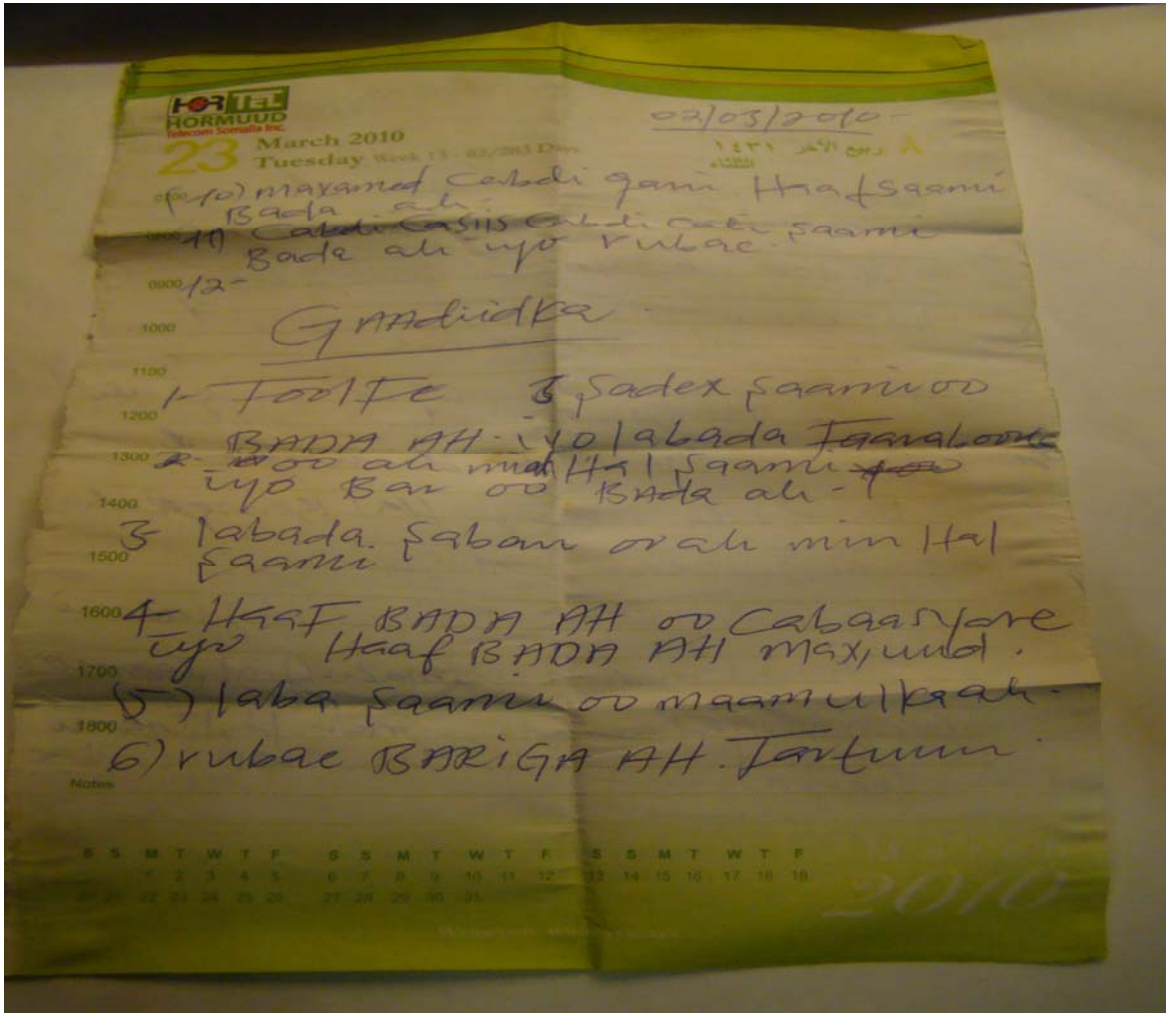 HOR TEL
HORMUUD
Telecom Somalia Inc.
02/03/2010-
23 March 2010
Tuesday Week 13 - 82/283 Days
٨ ربيع الآخر ١٤٣١
10) Maxamed Cabdi gani Haaf Saami
Bada ah.
11) Cabdi Casiis Cabdi Saami
Bada ah iyo rubac.
0900 12-
GAAdiidka
1000
1100
1- FoolFe 3 Sadex Saami oo
1200
BADA AH iyo labada
1300 2- oo ah min Hal Saami
iyo Bar oo BAda ah-
1400
3- labada Saban oo ah min Hal
1500 Saami
1600 4- HaaF BADA AH oo Cabaasyare
iyo Haaf BADA AH max,uud.
1700
(5) laba Saami oo maamulka ah.
1800
6) rubac BARIGA AH. Tartuun.
Notes
S S M T W T F S S M T W T F S S M T W T F
1 2 3 4 5 6 7 8 9 10 11 12 13 14 15 16 17 18 19
20 21 22 23 24 25 26 27 28 29 30 31
2010